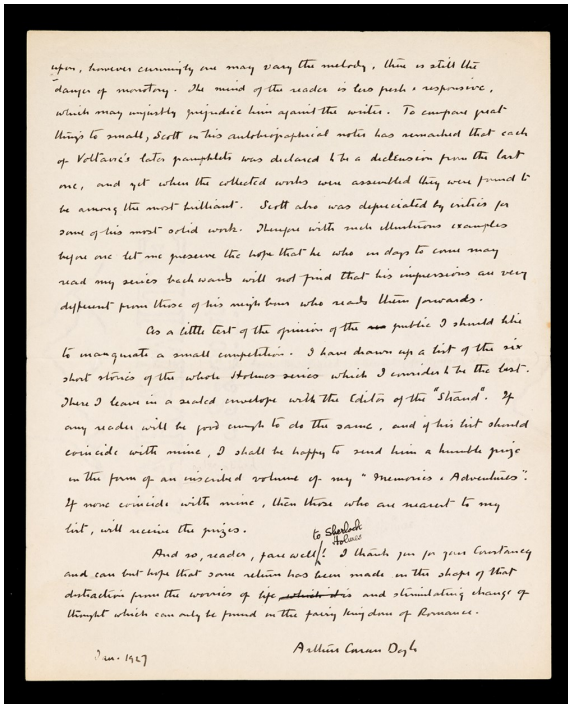 upon, however cunningly one may vary the melody, there is still the
danger of monotony. The mind of the reader is less fresh & responsive,
which may unjustly prejudice him against the writer. To compare great
things to small, Scott in his autobiographical notes has remarked that each
of Voltaire's later pamphlets was declared to be a declension from the last
one, and yet when the collected works were assembled they were found to
be among the most brilliant. Scott also was depreciated by critics for
some of his most solid work. Therefore with such illustrious examples
before one let me preserve the hope that he who in days to come may
read my series backwards will not find that his impressions are very
different from those of his neighbour who reads them forwards.
As a little test of the opinion of the public I should like
to inaugurate a small competition. I have drawn up a list of the six
short stories of the whole Holmes series which I consider to be the best.
There I leave in a sealed envelope with the Editor of the "Strand". If
any reader will be good enough to do the same, and if his list should
coincide with mine, I shall be happy to send him a humble prize
in the form of an inscribed volume of my "Memories & Adventures".
If none coincide with mine, then those who are nearest to my
list, will receive the prizes.
to Sherlock
Holmes
And so, reader, farewell! I thank you for your Constancy
and can but hope that some return has been made in the shape of that
distraction from the worries of life which is and stimulating change of
thought which can only be found in the fairy kingdom of Romance.
Arthur Conan Doyle
Jan. 1927